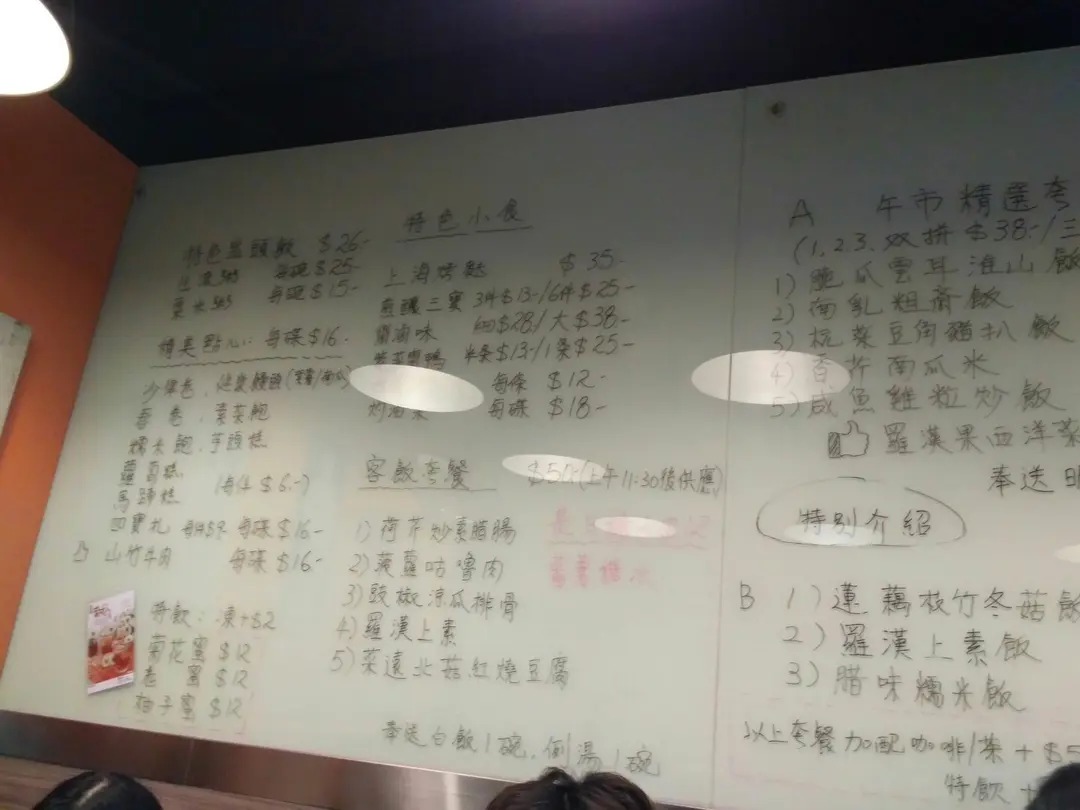 特色小食
上海烤麩 $35.-
煎釀三寶 3件$13-/6件$25-
滷味 細$28/大$38-
半条$13-/1条$25-
每條 $12-
每碟 $18-
$26-
每碗$25-
每碗$15-
精美點心: 每碟$16.
春卷、素菜飽
糯米飽、芋頭糕
蘿蔔糕
馬蹄糕 (每件$6.-)
四寶札 每件$9- 每碟$16-
山竹牛肉 每碟$16-
特飲: 凍+$2
菊花蜜 $12
蜜 $12
柚子蜜 $12
客飯套餐 (上午11:30後供應)
1) 荷芹炒素腊腸
2) 菠蘿咕嚕肉
3) 豉椒涼瓜排骨
4) 羅漢上素
5) 菜遠北菇紅燒豆腐
奉送白飯1碗, 例湯1碗
A 午市精選套
(1,2,3,双拼$38-/三
1) 瓜雲耳淮山飯
2) 南乳粗齋飯
3) 梳菜豆角豬扒飯
4) 香芹南瓜米
5) 咸魚雞粒炒飯
羅漢果西洋菜
奉送
特別介紹
B 1) 蓮藕枝竹冬菇飯
2) 羅漢上素飯
3) 腊味糯米飯
以上套餐加配咖啡/茶+$5
特飲+